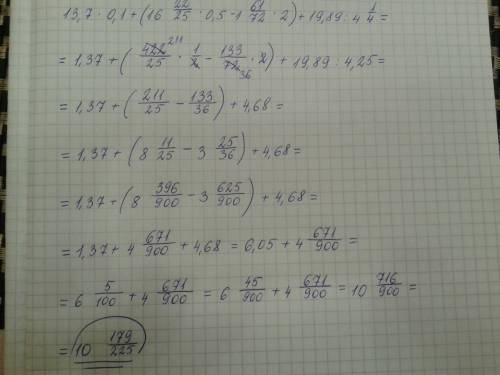 13,7 · 0,1 + (16 22/25 · 0,5 - 1 61/72 · 2) + 19,89 : 4 1/4 =
= 1,37 + ( 422 211/25 · 1/2 - 133/72 36 · 2 ) + 19,89 : 4,25 =
= 1,37 + ( 211/25 - 133/36 ) + 4,68 =
= 1,37 + ( 8 11/25 - 3 25/36 ) + 4,68 =
= 1,37 + ( 8 396/900 - 3 625/900 ) + 4,68 =
= 1,37 + 4 671/900 + 4,68 = 6,05 + 4 671/900 =
= 6 5/100 + 4 671/900 = 6 45/900 + 4 671/900 = 10 716/900 =
= 10 179/225